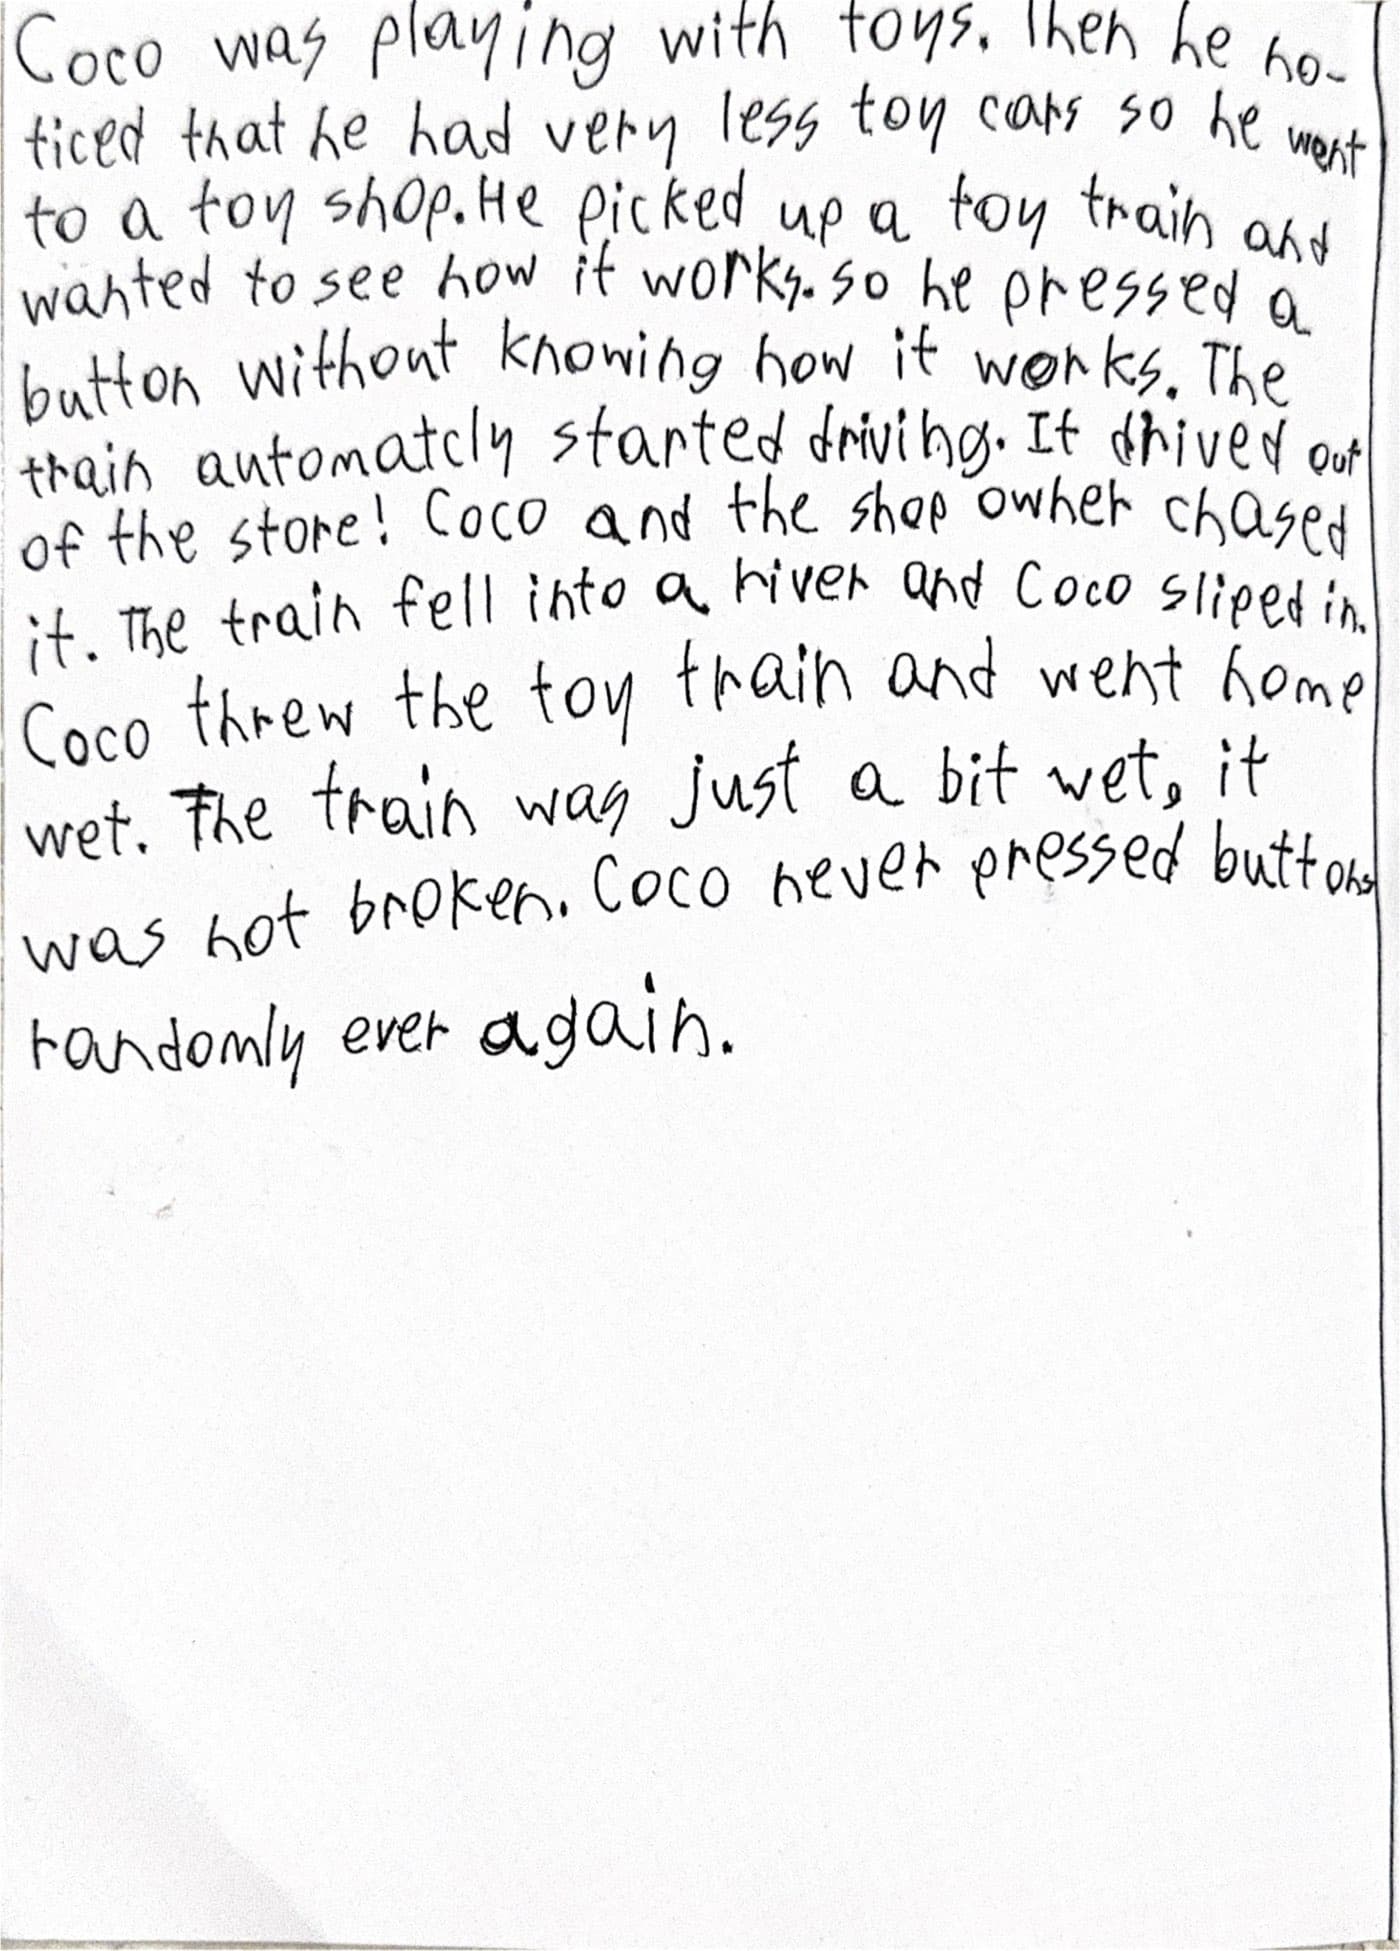 Coco was playing with toys. Then he no-
ticed that he had very less toy cars so he went
to a toy shop. He picked up a toy train and
wanted to see how it works. so he pressed a
button without knowing how it works. The
train automatcly started driving. It drived out
of the store! Coco and the shop owner chased
it. The train fell into a river and Coco sliped in.
Coco threw the toy train and went home
wet. The train was just a bit wet, it
was not broken. Coco never pressed buttons
randomly ever again.